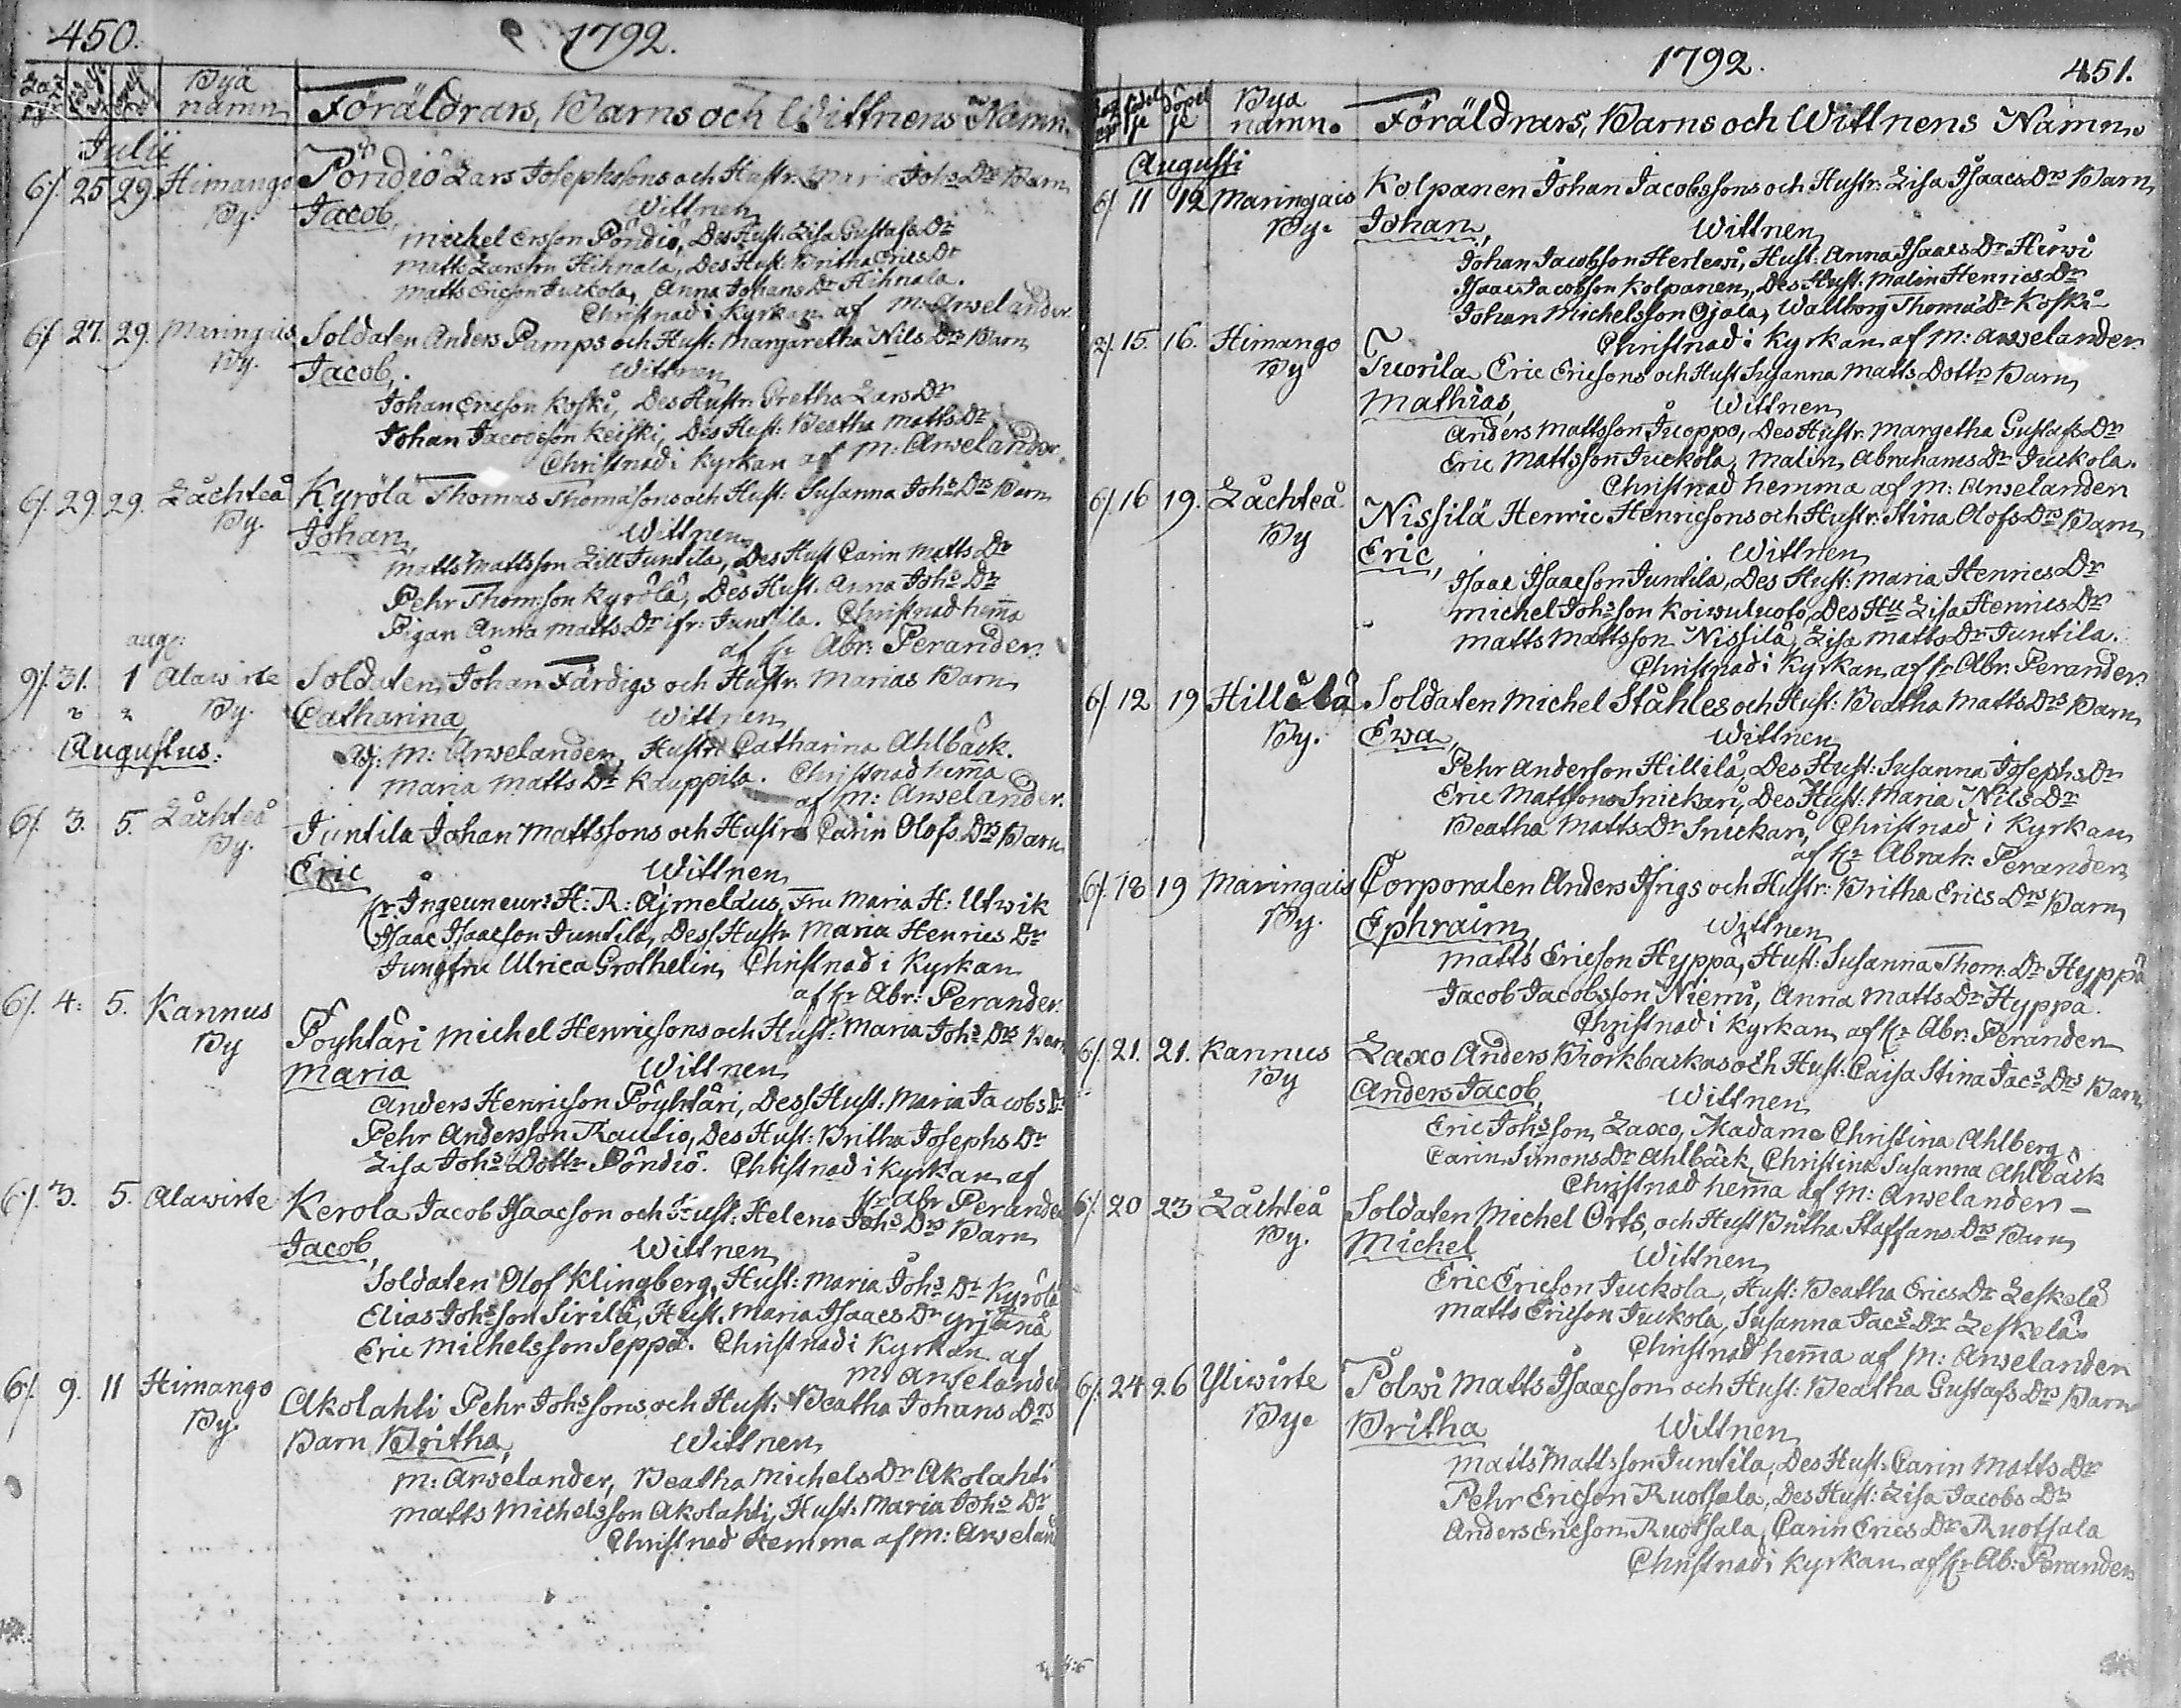 450. 1792.
Byä namn Föräldrars, Barns och Wittnens Namn.
Julii
6/. 25 29. Himango By. Pöndiö Lars Josephssons och Hustr. Maria Johs Drs Barn
Jacob, Wittnen
Michel Ersson Pöndiö, Des Hust: Lisa Gustafs Dr
Matts Larsson Hihnala, Des Hust: Britha Erics Dr
Matts Ericson Juckola, Anna Johans Dr Hihnala.
Christnad i Kyrkan af M: Arwelander.
6/. 27. 29. Maringais By. Soldaten Anders Pamps och Hust: Margaretha Nils Drs Barn
Jacob, Wittnen
Johan Ericson Koski, Des Hustr. Gretha Lars Dr
Johan Jacobsson Keiski, Des Hust: Beatha Matts Dr
Christnad i Kyrkan af M: Arwelander.
6/. 29. 29. Låchteå By. Kyrölä Thomas Thomasons och Hust: Susanna Johs Drs Barn
Johan, Wittnen
Matts Mattsson Lill Juntila, Des Hust Carin Matts Dr
Pehr Thomsson Kyrölä, Des Hust. Anna Johs Dr
Pigan Anna Matts Dr ifr: Juntila. Christnad hem̅a
af Hr Abr: Perander.
aug:
9/. 31. 1 Alawirte By. Soldaten Johan Färdigs och Hustr. Marias Barn
Catharina, Wittnen
M: Arwelander, Hustr: Catharina Ahlbäck.
Maria Matts Dr Kauppila. Christnad hem̅a
af M: Arwelander.
Augustus:
6/. 3. 5. Låchteå By. Juntila Johan Mattssons och Hustr Carin Olofs Drs Barn
Eric Wittnen
Hr Ingeuneur: H: R: Ajmelæus, Fru Maria H: Utwik
Isaac Isaacson Juntila, Dess Hustr Maria Henrics Dr
Jungfru Ulrica Grothelin, Christnad i Kyrkan
af Hr Abr: Perander.
6/. 4: 5. Kannus By Pöyhtäri Michel Henricsons och Hust: Maria Johs Drs Barn
Maria Wittnen
Anders Henricson Pöyhtäri, Dess Hust: Maria Jacobs Dr
Pehr Andersson Rautio, Des Hust: Britha Josephs Dr
Lisa Johs Dottr Pöndiö. Christnad i Kyrkan af
Hr Abr Perander
6/. 3. 5. Alawirte Kerola Jacob Isaacson och Hust: Helena Johs Drs Barn
Jacob, Wittnen
Soldaten Olof Klingberg, Hust: Maria Johs Dr Kyrölä
Elias Johsson Sirilä, Hust. Maria Isaacs Dr Yrjänä
Eric Michelsson Seppä. Christnad i Kyrkan af
M: Arwelander
6/. 9. 11 Himango By. Akolahti Pehr Johssons och Hust: Beatha Johans Drs
Barn Britha, Wittnen
M: Arwelander, Beatha Michels Dr Akolahti
Matts Michelsson Akolahti, Hust: Maria Johs Dr
Christnad Hemma af M: Arwelan
1792. 451.
Byä namn. Föräldrars, Barns och Wittnens Namn.
Augusti
6/ 11 12 Maringais By. Kolpanen Johan Jacobssons och Hustr: Lisa Isaacs Drs Barn
Johan, Wittnen
Johan Jacobson Herlewi, Hust: Anna Isaacs Dr Hirwi
Isaac Jacobson Kolpanen, Des Hust: Malin Henrics Dr
Johan Michelsson Ojala, Wallborg Thoma Dr Koski
Christnad i Kyrkan af M: Arwelander.
2/. 15. 16. Himango By Tuorila Eric Ericsons och Hust Susanna Matts Dottrs Barn
Mathias, Wittnen
Anders Mattsson Juoppo, Des Hustr Margetha Gustafs Dr
Eric Mattsson Juckola, Malin Abrahams Dr Juckola.
Christnad hemma af M: Arwelander
6/. 16 19. Låchteå By Nissilä Henric Henricsons och Hustr: Stina Olofs Drs Barn
Eric, Wittnen
Isaac Isaacson Juntila, Des Hust: Maria Henrics Dr
Michel Johsson Koiwuluoto, Des Hu Lisa Henrics Dr
Matts Mattsson Nissilä, Lisa Matts Dr Juntila.
Christnad i Kyrkan af Hr Abr: Perander.
6/. 12 19 Hillilä By. Soldaten Michel Ståhles och Hust: Beatha Matts Drs Barn
Ewa, Wittnen
Pehr Anderson Hillilä, Des Hust: Susanna Josephs Dr
Eric Mattsons Snickari, Des Hust: Maria Nils Dr
Beatha Matts Dr Snickari, Christnad i Kyrkan
af Hr Abrah: Perander
6/. 18 19 Maringais By. Corporalen Anders Ifrigs och Hustr: Britha Erics Drs Barn
Ephraim, Wittnen
Matts Ericson Hyppä, Hust: Susanna Thom: Dr Hyppä
Jacob Jacobsson Niemi, Anna Matts Dr Hyppä.
Christnad i Kyrkan af Hr Abr: Perander
6/. 21. 21. Kannus By Laxo Anders Biörkbackas och Hust: Caisa Stina Jacs Drs Barn
Anders Jacob, Wittnen
Eric Johsson Laxo, Madame Christina Ahlberg
Carin Simons Dr Ahlbäck, Christina Susanna Ahlbäck
Christnad hem̅a af M: Arwelander –
6/. 20 23 Låchteå By. Soldaten Michel Orts, och Hust Britha Staffans Drs Barn
Michel Wittnen
Eric Ericson Juckola, Hust: Beatha Erics Dr Leskelä
Matts Ericson Juckola, Susanna Jacs Dr Leskelä
Christnad hem̅a af M: Arwelander
6/. 24 26 Yliwirte By. Polwi Matts Isaacson och Hust: Beatha Gustafs Drs Barn
Britha Wittnen
Matts Mattsson Juntila, Des Hust: Carin Matts Dr
Pehr Ericson Ruotsala, Des Hust: Lisa Jacobs Dr
Anders Ericson Ruotsala, Carin Erics Dr Ruotsala
Christnad i Kyrkan af Hr Ab: Perander